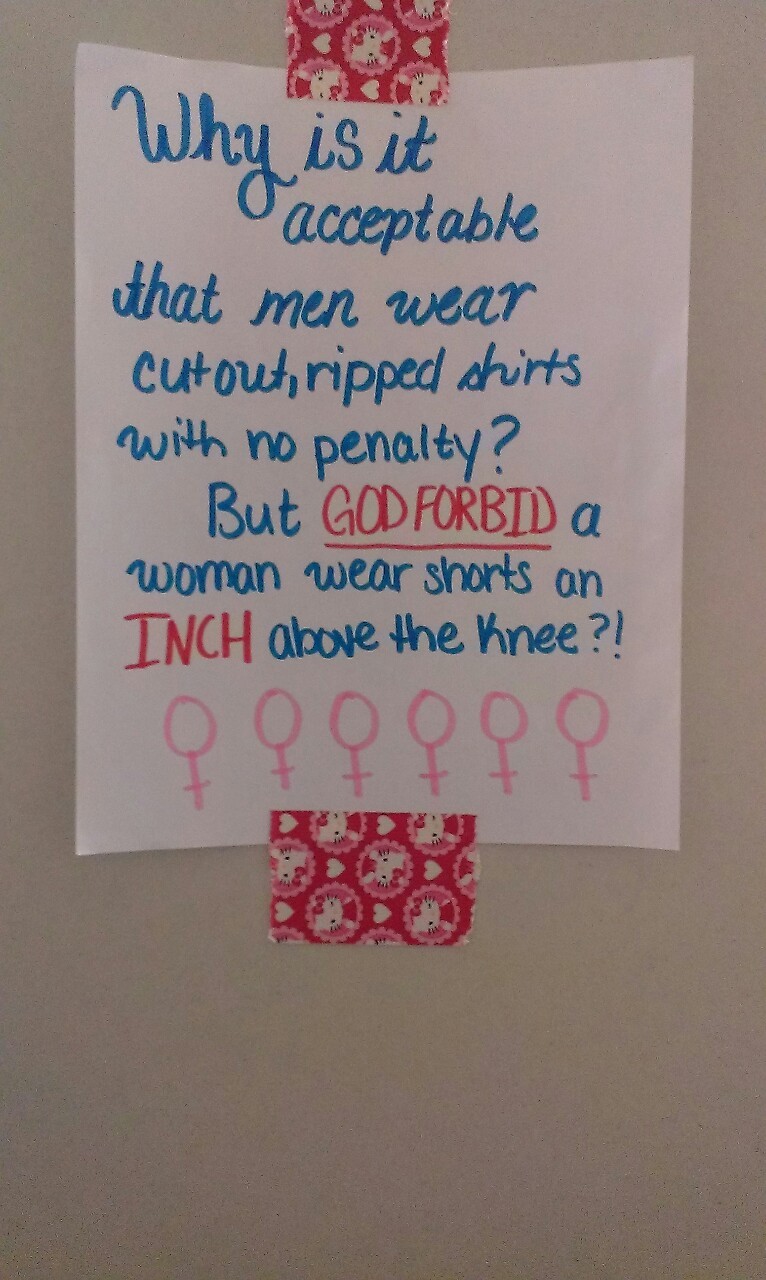 Why is it
acceptable
that men wear
cutout, ripped shirts
with no penalty?
But GOD FORBID a
woman wear shorts an
INCH above the knee?!
♀ ♀ ♀ ♀ ♀ ♀